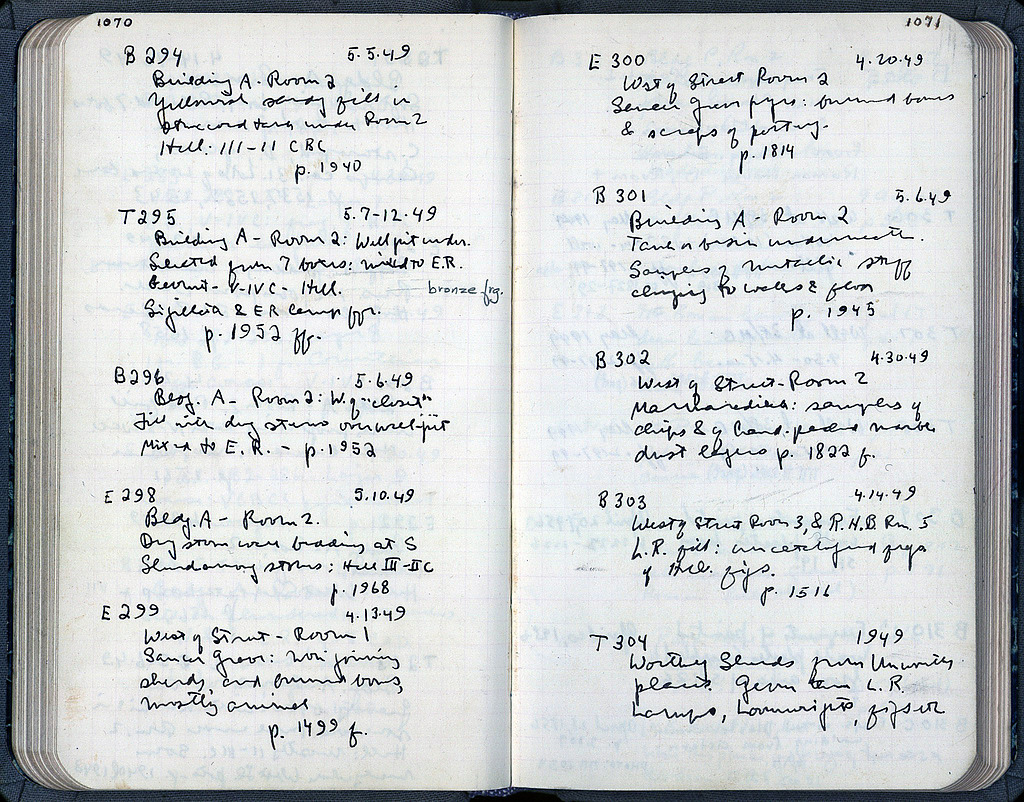 1070
B 294 5.5.49
Building A - Room 2
Yellowish sandy fill in
under Room 2
Hell: III-II C BC
p. 1940
T 295 5.7-12.49
Building A - Room 2: Well pit under.
Selected from 7 boxes; mixed to E.R.
V-IV C - Hell. — bronze frg.
Sigillata & ER lamp ffr.
p. 1952 ff.
B 296 5.6.49
Bldg. A - Room 2: W. of "closet"
Fill with dug stones over well pit
Mixed to E.R. - p. 1952
E 298 5.10.49
Bldg. A - Room 2.
Dug stone bedding at S
stones; Hell III-II C
p. 1968
E 299 4.13.49
West of Street - Room 1
Saucer Grave: Non joining
sherds, and burned bones,
mostly animal
p. 1499 f.
1071
E 300 4.20.49
West of Street Room 2
Saucer Grave pyre: burned bones
& scraps of pottery.
p. 1814
B 301 5.6.49
Building A - Room 2
Tank or basin underneath.
Samples of "metallic" stuff
clinging to walls & floor
p. 1945
B 302 4.30.49
West of Street - Room 2
samples of
chips & of hand-packed marble
dust layers p. 1822 f.
B 303 4.14.49
West of Street Room 3, & R.H.B. Rm. 5
L.R. fill: uncatalogued frgs
of figs.
p. 1516
T 304 1949
Worthy Sherds from Unworthy
places. Given L.R.
Lamps, Loomweights, figs etc